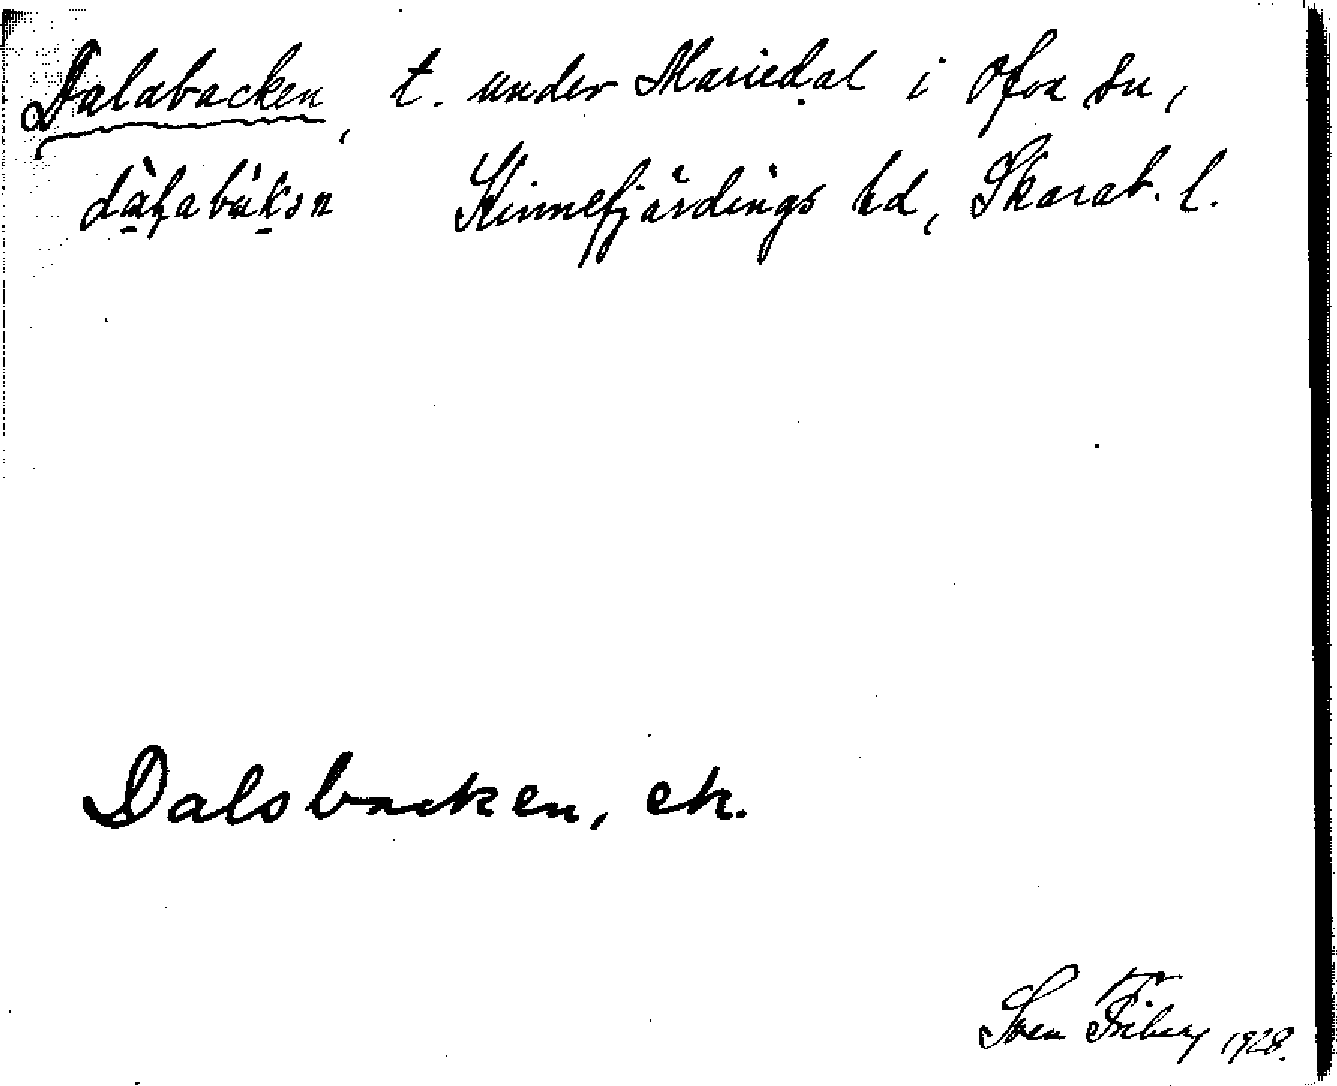 Dalabacken, t. under Mariedal i Ofva sn,
dàlabàkən Kinnefjärdings hd, Skarab. l.
Dalsbacken, ek.
Sven Friberg 1928.